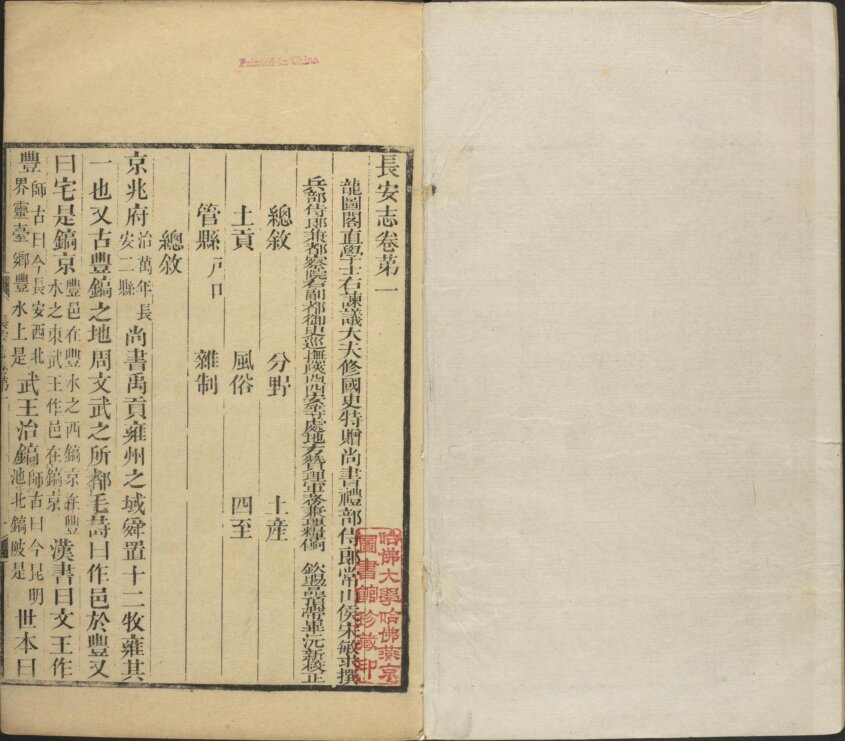 Printed in China
長安志卷第一
龍圖閣直學士右諫議大夫修國史特贈尚書禮部侍郎常山侯宋敏求撰
兵部侍郎兼都察院右副都御史巡撫陝西西安等處地方贊理軍務兼理糧餉 欽賜一品頂帶畢沅新校正
總敘 分野 土產
土貢 風俗 四至
管縣戶口 雜制
總敘
京兆府治萬年長安二縣尚書禹貢雍州之域舜置十二牧雍其
一也又古豐鎬之地周文武之所都毛詩曰作邑於豐又
曰宅是鎬京豐邑在豐水之西鎬京在豐水之東武王作邑在鎬京漢書曰文王作
豐師古曰今長安西北界靈臺鄉豐水上是武王治鎬師古曰今昆明池北鎬陂是世本曰
哈佛大學哈佛燕京
圖書館珍藏印